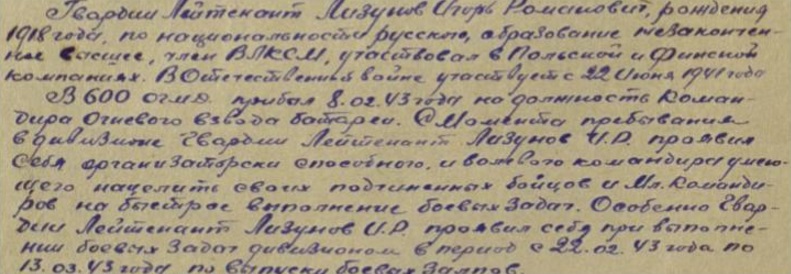 Гвардии Лейтенант Лизунов Игорь Романович, рождения
1918 года, по национальности русского, образование незакончен-
ное высшее, член ВЛКСМ, участвовал в Польской и Финской
компаниях. В Отечественной войне участвует с 22 Июня 1941 года
В 600 огмд. прибыл 8.02.43 года на должность Коман-
дира Огневого взвода батареи. С Момента пребывания
в дивизионе Гвардии Лейтенант Лизунов И.Р. проявил
Себя организаторски способного, и волевого командира умею-
щего нацелить своих подчиненных бойцов и Мл. Команди-
ров на быстрое выполнение боевых задач. Особенно Гвар-
дии Лейтенант Лизунов И.Р. проявил себя при выполне-
нии боевых Задач дивизионом в период с 22.02.43 года по
13.03.43 года по выпуску боевых Залпов.